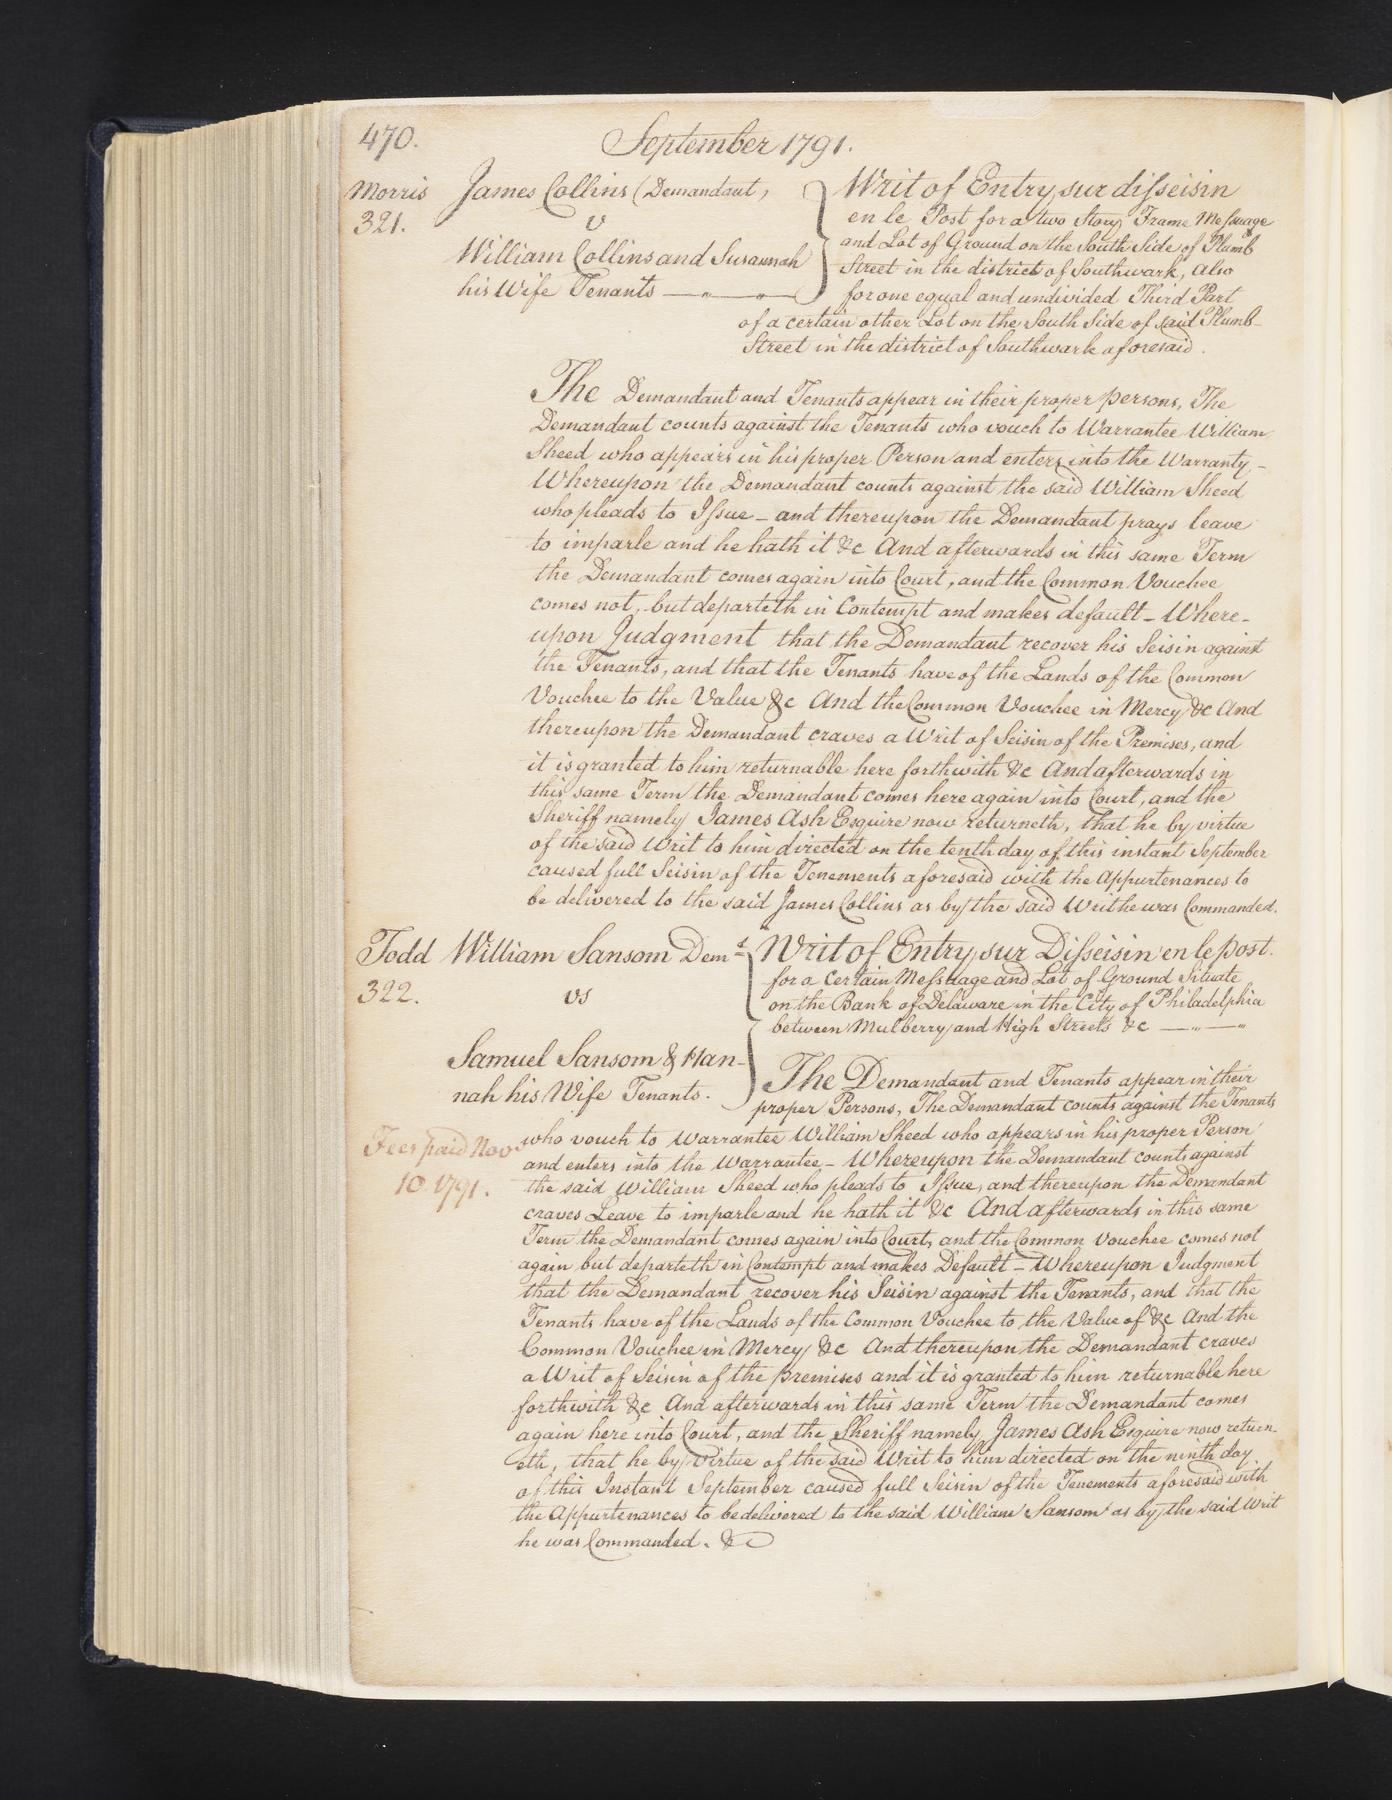 470.
September 1791.
Morris
321.
James Collins (Demandant,
v
William Collins and Susannah
his Wife Tenants
Writ of Entry sur disseisin
en le Post for a two Story Frame Messuage
and Lot of Ground on the South Side of Plumb
Street in the district of Southwark, Also
for one equal and undivided Third Part
of a certain other Lot on the South Side of said Plumb-
Street in the district of Southwark aforesaid.
The Demandant and Tenants appear in their proper persons, The
Demandant counts against the Tenants who vouch to Warrantee William
Sheed who appears in his proper Person and enters into the Warranty-
Whereupon the Demandant counts against the said William Sheed
who pleads to Issue - and thereupon the Demandant prays leave
to imparle and he hath it &c And afterwards in this same Term
the Demandant comes again into Court, and the Common Vouchee
comes not, but departeth in Contempt and makes default - Where-
upon Judgment that the Demandant recover his Seisin against
the Tenants, and that the Tenants have of the Lands of the Common
Vouchee to the Value &c And the Common Vouchee in Mercy &c And
thereupon the Demandant craves a Writ of Seisin of the Premises, and
it is granted to him returnable here forthwith &c And afterwards in
this same Term the Demandant comes here again into Court, and the
Sheriff namely James Ash Esquire now returneth, that he by virtue
of the said Writ to him directed on the tenth day of this instant September
caused full Seisin of the Tenements aforesaid with the Appurtenances to
be delivered to the said James Collins as by the said Writ he was Commanded.
Todd
322.
William Sansom Demt
vs
Samuel Sansom & Han-
nah his Wife Tenants.
Writ of Entry sur Disseisin en le post.
for a Certain Messuage and Lot of Ground Situate
on the Bank of Delaware in the City of Philadelphia
between Mulberry and High Streets &c
The Demandant and Tenants appear in their
proper Persons, The Demandant counts against the Tenants
Fees paid Nov
10 1791.
who vouch to Warrantee William Sheed who appears in his proper Person
and enters into the Warrantee - Whereupon the Demandant counts against
the said William Sheed who pleads to Issue, and thereupon the Demandant
craves Leave to imparle and he hath it &c And afterwards in this same
Term the Demandant comes again into Court, and the Common Vouchee comes not
again but departeth in Contempt and makes Default - Whereupon Judgment
that the Demandant recover his Seisin against the Tenants, and that the
Tenants have of the Lands of the Common Vouchee to the Value of &c And the
Common Vouchee in Mercy &c And thereupon the Demandant craves
a Writ of Seisin of the Premises and it is granted to him returnable here
forthwith &c And afterwards in this same Term the Demandant comes
again here into Court, and the Sheriff namely James Ash Esquire now return-
eth, that he by Virtue of the said Writ to him directed on the ninth day
of this Instant September caused full Seisin of the Tenements aforesaid with
the Appurtenances to be delivered to the said William Sansom as by the said Writ
he was Commanded. &c